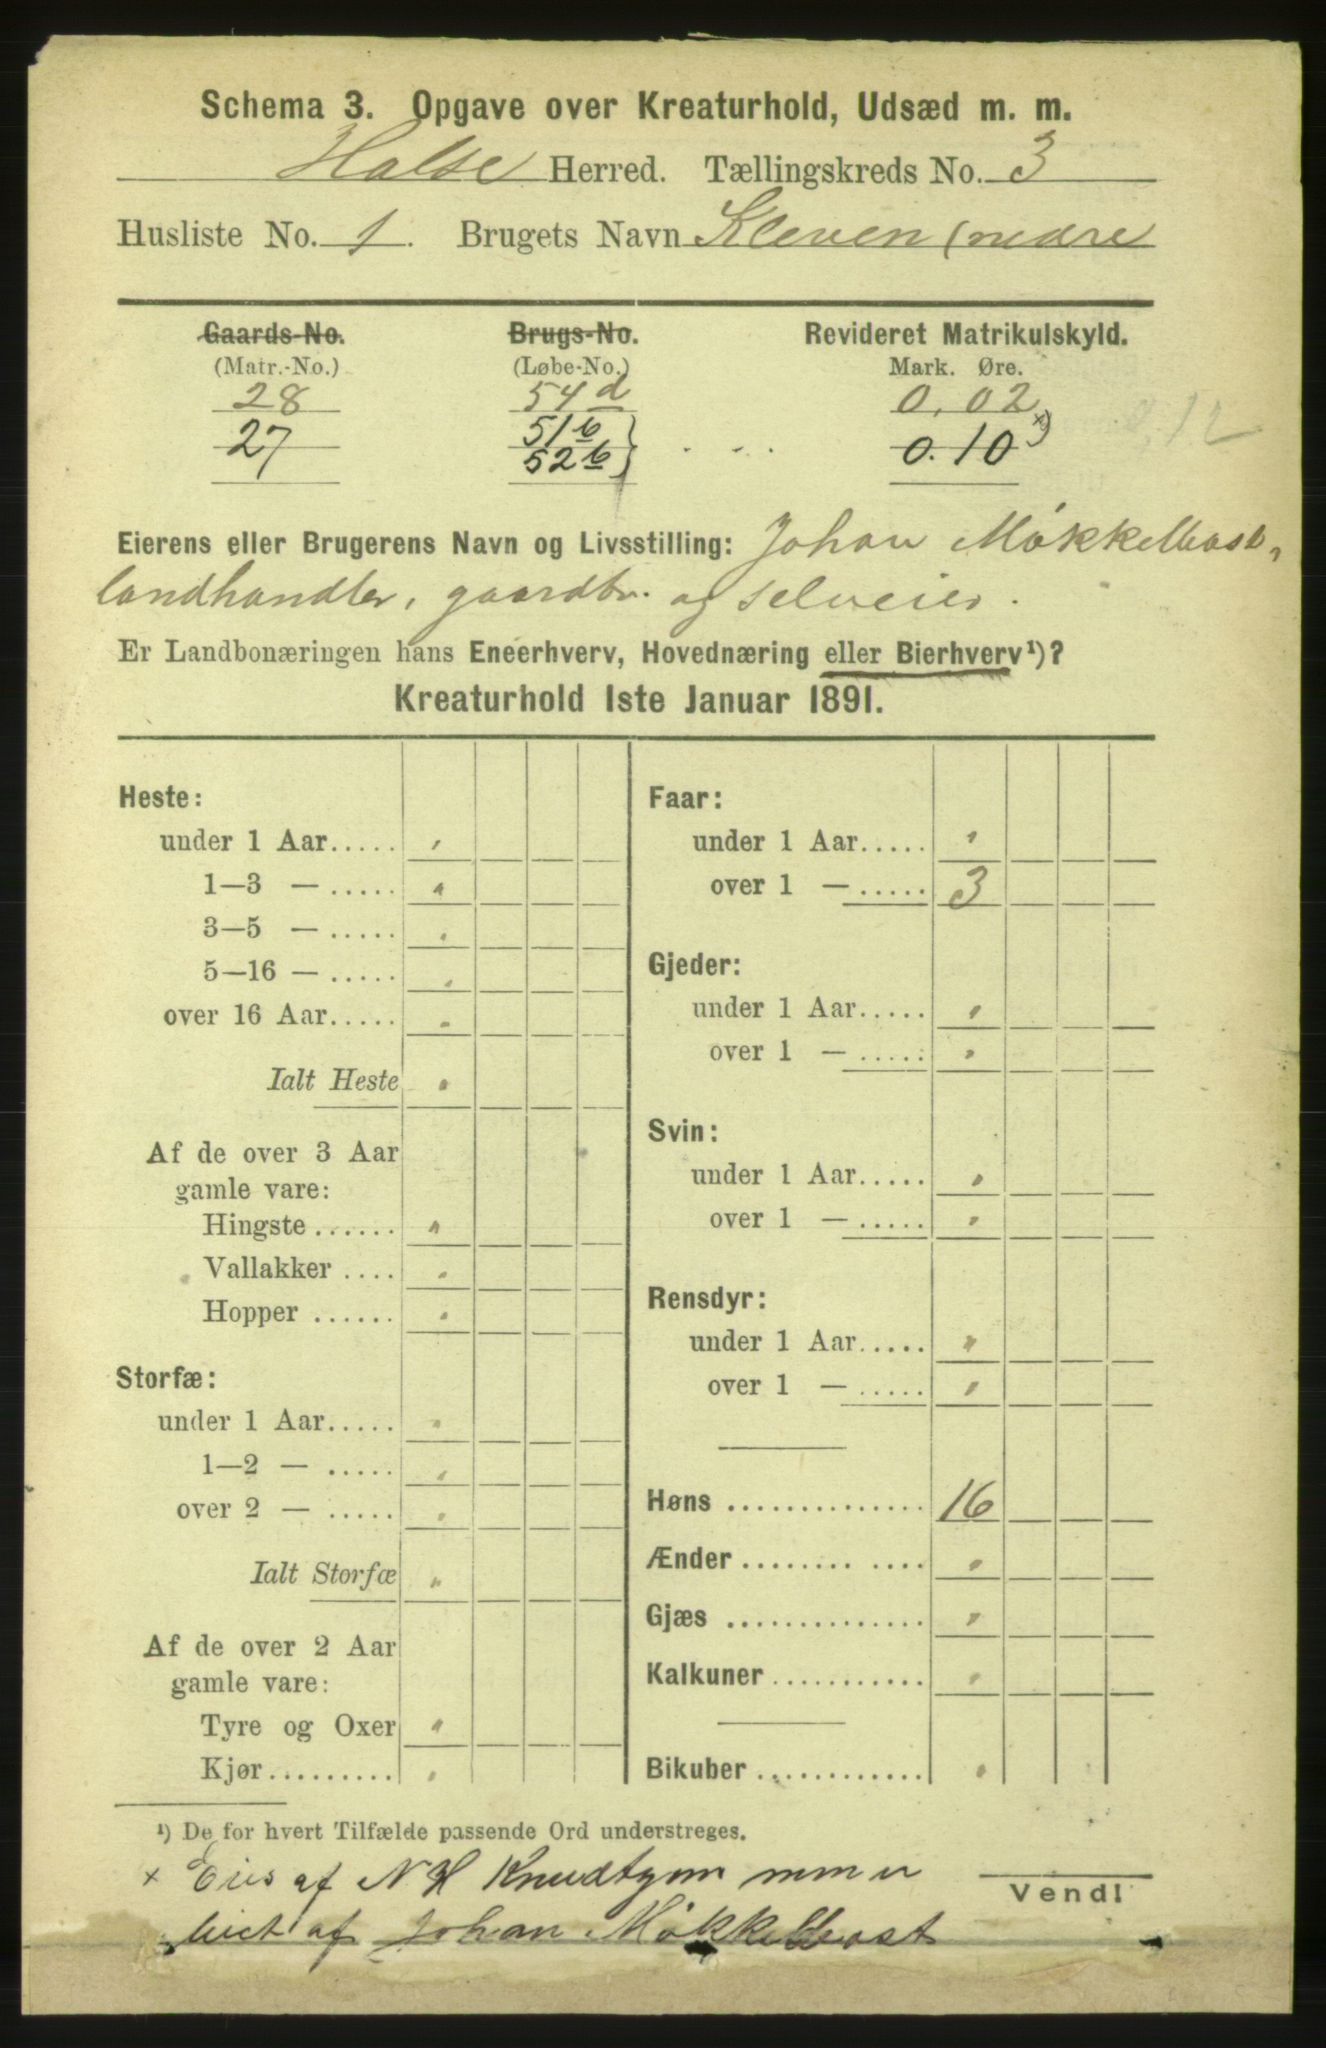 Schema 3. Opgave over Kreaturhold, Udsæd m. m.
Halse Herred. Tællingskreds No. 3
Husliste No. 1. Brugets Navn Kleven (nedre
Gaards-No. Brugs-No. Revideret Matrikulskyld.
(Matr.-No.) (Løbe-No.) Mark. Øre.
28 54 d 0.02
27 51 b 0.10 x)
52 b
12
Eierens eller Brugerens Navn og Livsstilling: Johan Møkkelbost,
landhandler, gaardbr. og selveier.
Er Landbonæringen hans Eneerhverv, Hovednæring eller Bierhverv¹)?
Kreaturhold 1ste Januar 1891.
Heste:
under 1 Aar.....
1—3 — .....
3—5 — .....
5—16 — .....
over 16 Aar.....
Ialt Heste
Af de over 3 Aar
gamle vare:
Hingste ......
Vallakker ....
Hopper ......
Storfæ:
under 1 Aar.....
1—2 — .....
over 2 — .....
Ialt Storfæ
Af de over 2 Aar
gamle vare:
Tyre og Oxer
Kjør.........
Faar:
under 1 Aar.....
over 1 — ..... 3
Gjeder:
under 1 Aar.....
over 1 — .....
Svin:
under 1 Aar.....
over 1 — .....
Rensdyr:
under 1 Aar.....
over 1 — .....
Høns .............. 16
Ænder ........ ....
Gjæs ..............
Kalkuner...........
Bikuber ............
¹) De for hvert Tilfælde passende Ord understreges.
x Eies af N H Knudtzon
af Johan Møkkelbost
Vend!